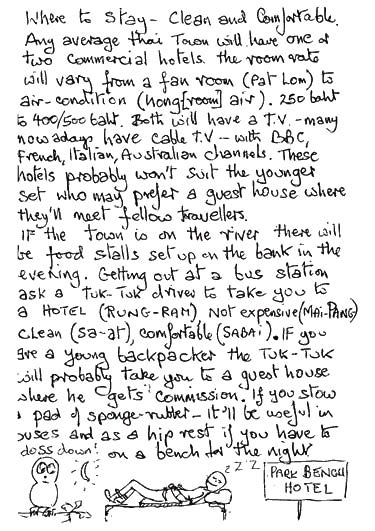 Where to Stay - Clean and Comfortable.
Any average thai Town will have one or
two commercial hotels. the room rate
will vary from a fan room (Pat Lom) to
air-condition (hong[room] air). 250 baht
to 400/500 baht. Both will have a T.V. - many
nowadays have cable T.V -- with BBC,
French, Italian, Australian channels. These
hotels probably won't suit the younger
set who may prefer a guest house where
they'll meet fellow travellers.
IF the town is on the river there will
be food stalls set up on the bank in the
evening. Getting out at a bus station
ask a TUK-TUK driver to take you to
a HOTEL (RUNG-RAM) Not expensive (MAI-PANG)
Clean (Sa-at), comfortable (SABAi). IF you
are a young backpacker the TUK-TUK
will probably take you to a guest house
where he gets commission. If you stow
a pad of sponge-rubber - it'll be useful in
buses and as a hip rest if you have to
doss down on a bench for the night
z z z
PARK BENCH
HOTEL